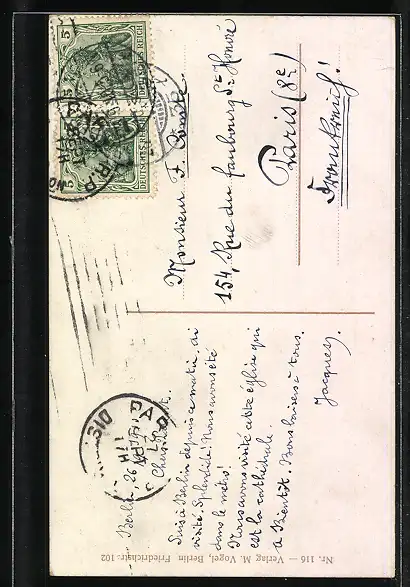 Berlin, 26
Suis à Berlin depuis ce matin, ai
visité. Splendide! Nous avons été
dans le métro!
Nous avons visité cette église qui
est la cathédrale.
à Bientôt. Bons baisers à tous.
Jacques.
Monsieur F.
154, Rue du faubourg St Honoré
Paris (8e)
Frankreich!
DEUTSCHES REICH
5
DEUTSCHES REICH
5
Nr. 116 — Verlag M. Vogel, Berlin Friedrichstr. 102